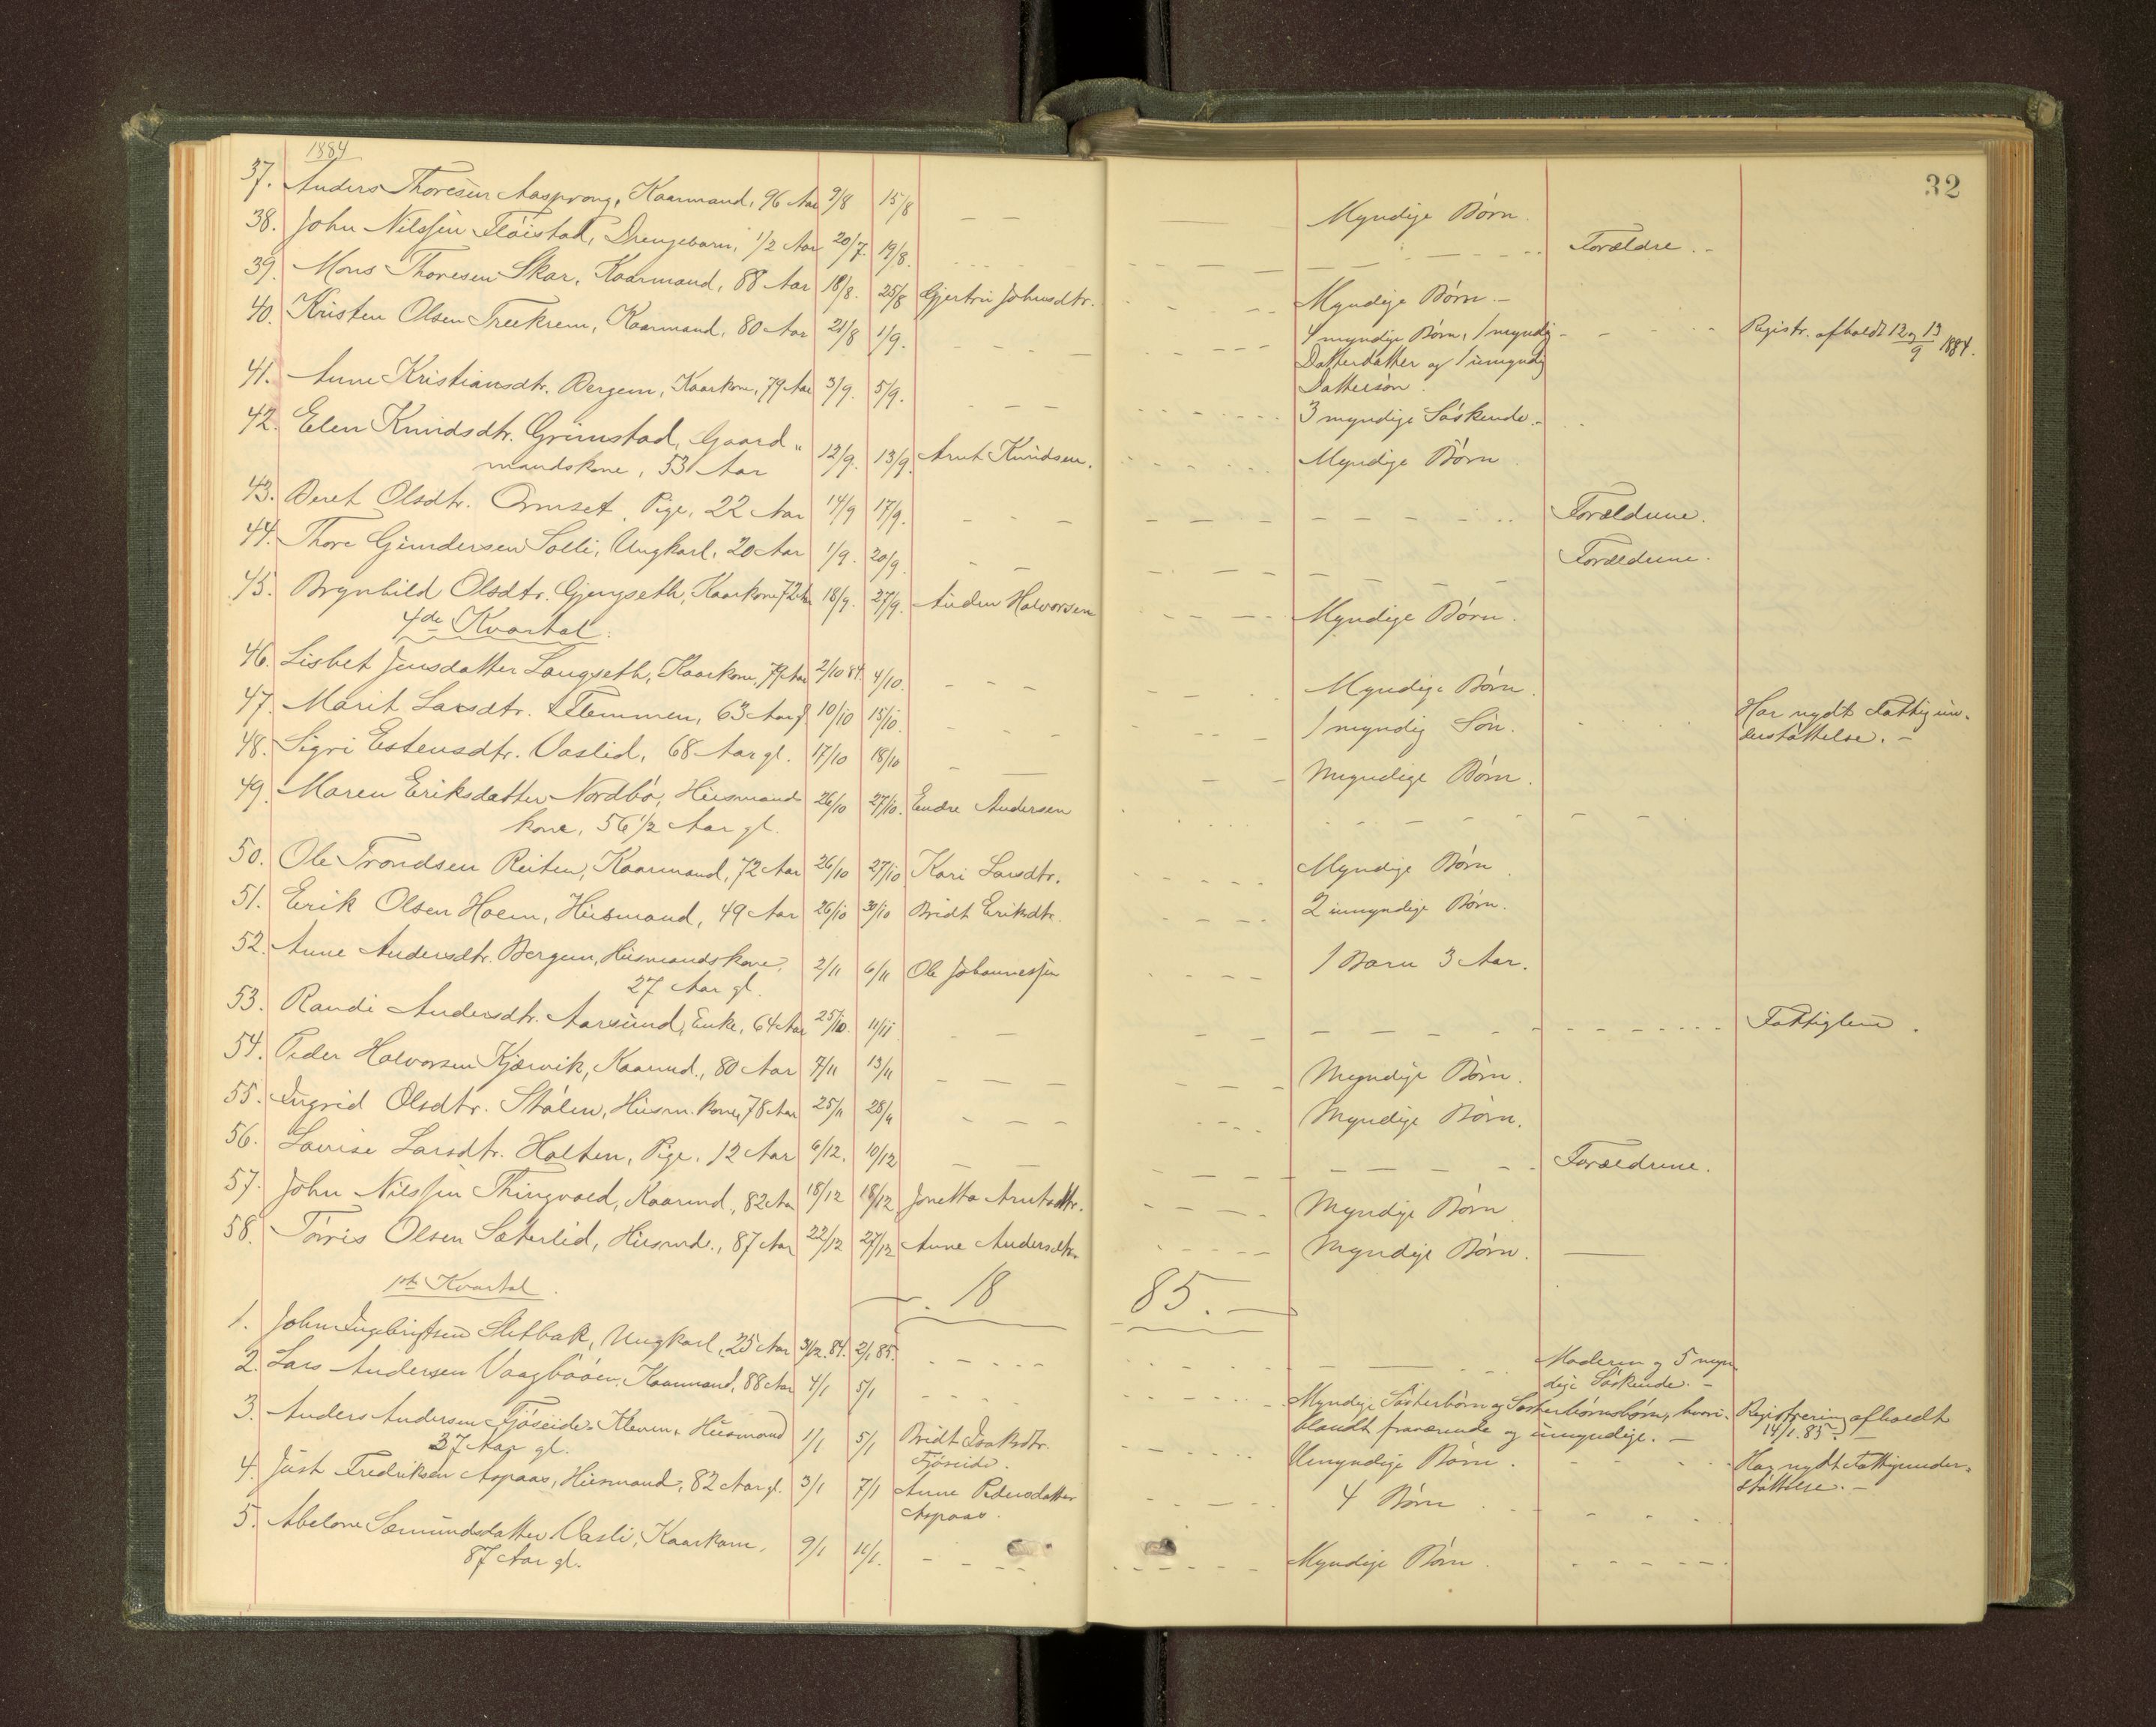 1884
32
37. Anders Thoresen Aasprong, Kaarmand, 96 Aar 9/8 15/8 — — — Myndige Børn.
38. John Nilssen Fløistad, Drengebarn, 1/2 Aar 20/7. 19/8. Forældre. –
39. Mons Thoresen Skar, Kaarmand, 88 Aar 18/8. 25/8 Gjertru Johnsdtr. Myndige Børn. –
40. Kristen Olsen Treekrem, Kaarmand, 80 Aar 21/8 1/9. 4 myndige Børn, 1 myndig Registr. afholdt 12 og 13/9 1884.
Datterdatter og 1 umyndig
Dattersøn.
41. Anne Kristiansdtr. Bergem, Kaarkone, 79 Aar 3/9. 5/9. 3 myndige Søskende. –
42. Elen Knudsdtr. Grimstad, Gaard„
mandskone, 53 Aar 12/9. 13/9. Arnt Knudsen. Myndige Børn
43. Beret Olsdtr. Ormset, Pige, 22 Aar 14/9 17/9. Forældrene.
44. Thore Gundersen Solli, Ungkarl, 20 Aar 1/9. 20/9. Forældrene.
45. Brynhild Olsdtr. Gjengseth, Kaarkone 72 Aar 18/9. 27/9. Auden Halvorsen Myndige Børn.
4de Kvartal.
46. Lisbet Jensdatter Langseth, Kaarkone, 79 Aar 2/10 84. 4/10. Myndige Børn.
47. Marit Larsdtr. Flemmen, 63 Aar g 10/10 15/10. 1 myndig Søn. Har nydt Fattigun-
derstøttelse. –
48. Sigri Estensdtr. Vaslid, 68 Aar gl. 17/10 18/10 Myndige Børn.
49. Maren Eriksdatter Nordbø, Husmands 26/10 27/10. Endre Andersen
kone, 56 1/2 Aar gl.
50. Ole Trondsen Reiten, Kaarmand, 72 Aar 26/10 27/10 Kari Larsdtr. Myndige Børn.
51. Erik Olsen Holm, Husmand, 49 Aar 26/10 30/10 Bridt Eriksdtr. 2 umyndige Børn.
52. Anne Andersdtr. Bergem, Husmandskone, 2/11 6/11 Ole Johannessen 1 Barn 3 Aar.
27 Aar gl.
53. Randi Andersdtr. Aarsund, Enke, 64 Aar 25/10. 11/11 Fattiglem.
54. Peder Halvorsen Kjørvik, Kaarmd., 80 Aar 7/11 13/11 Myndige Børn.
55. Ingrid Olsdtr. Stølen, Husm. kone, 78 Aar 25/11 28/11 Myndige Børn.
56. Lovise Larsdtr. Holten, Pige, 12 Aar 6/12. 10/12 Forældrene.
57. John Nilssen Thingvold, Kaarmd., 82 Aar 18/12 18/12 Jonetta Arntsdtr. Myndige Børn
58. Tørris Olsen Sæterlid, Husmd., 87 Aar 22/12 27/12 Anne Andersdtr. Myndige Børn.
1ste Kvartal. 18 85. —
1. John Ingebrigtsen Slitbak, Ungkarl, 25 Aar 31/12. 84. 2/1 85. Moderen og 5 myn
dige Søskende. –
2. Lars Andersen Vaagbøøen, Kaarmand, 88 Aar 4/1 5/1 Myndige Søsterbørn og Søsterbørnsbørn, hvori- Registrering afholdt
blandt fraværende og umyndige. – 14/1. 85.
3. Anders Andersen Fjøseide Kleven, Husmand 1/1 5/1 Bridt Isaksdtr. Umyndige Børn. Har nydt Fattigunder-
37 Aar gl. Fjøseide. støttelse. –
4. Just Fredriksen Aspaas, Husmand, 82 Aar gl. 3/1 7/1 Anne Pedersdatter 4 Børn
Aspaas.
5. Abelone Sæmundsdatter Vasli, Kaarkone, 9/1 11/1. Myndige Børn.
87 Aar gl.